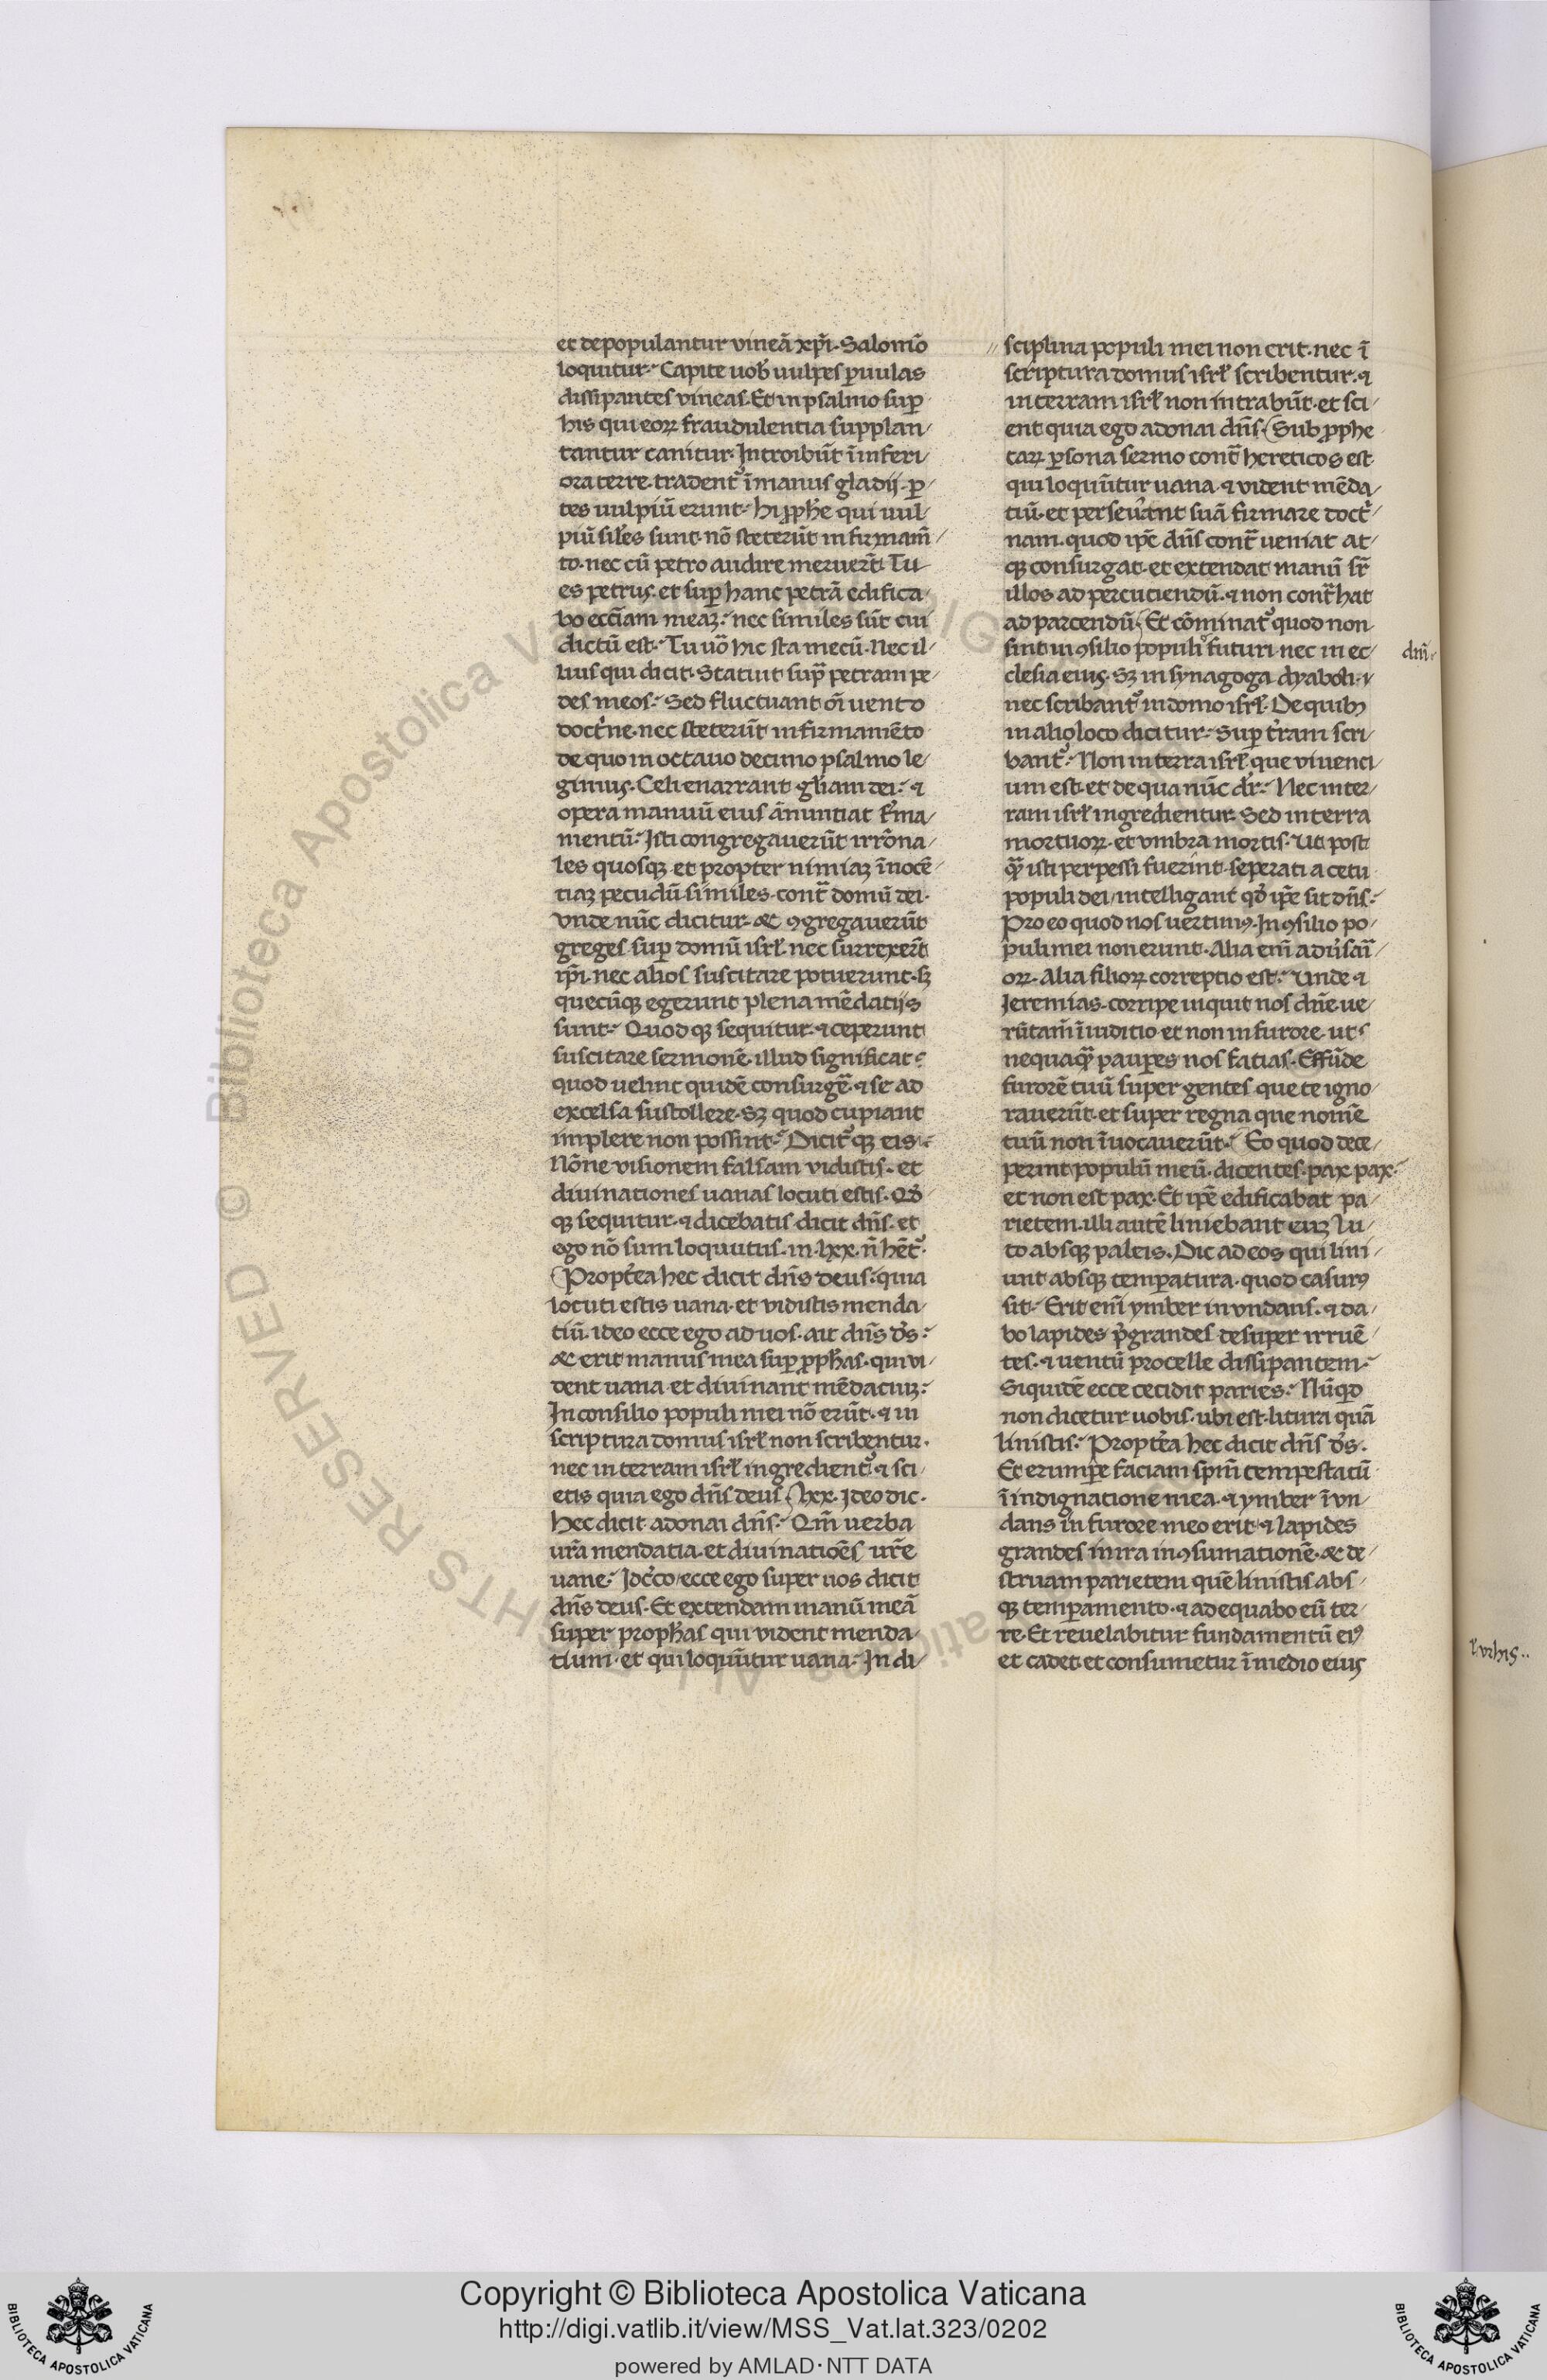 et depopulantur vineā xp̄i. Salomō
loquitur. Capite uob̄ uulpes ꝑuulas
dissipantes vineas. Et in psalmo suꝑ
his qui eoꝝ fraudulentia supplan
tantur canitur. Introibūt ī inferi
ora terre. tradentᷣ ī manus gladij. ꝑ
tes uulpiū erunt. hi ꝓph̄e qui uul
piū sil̄es sunt. nō steterūt in firmam̄
to. nec cū petro audire meruer̄t. Tu
es petrus. et suꝑ hanc petrā edifica
bo eccl̄iam meaꝫ. nec similes sūt cui
dictū est. Tu uō hic sta mecū. Nec il
lius qui dicit. Statuit sup̄ petram pe
des meos. Sed fluctuant oī uento
doctͥne. nec steterūt in firmamēto
de quo in octauo decimo psalmo le
gimus. Celi enarrant gl̄iam dei. ⁊
opera manuū eius ānuntiat fͥma
mentū. Isti congregauerūt irrōna
les quosqꝫ et propter nimiaꝫ īnocē
tiaꝫ pecudū similes. cont̄ domū dei.
vnde nūc dicitur. & ꝯgregauerūt
greges suꝑ domū isrl̄. nec surrexer̄t
ip̄i. nec alios suscitare potuerunt. sꝫ
quecūqꝫ egerunt plena mēdatijs
sunt. Quod qꝫ sequitur. ⁊ ceperunt
suscitare sermonē. illud significat
quod uelint quidē consurge̅. ⁊ se ad
excelsa sustollere. sꝫ quod cupiant
implere non possint. Dicitᷣ qꝫ eis.
Nōne visionem falsam vidistis. et
diuinationes uanas locuti estis. Qd̄
qꝫ sequitur. ⁊ dicebatis dicit dn̄s. et
ego nō sum loquutus. in lxx. n̄ hētᷣ.
Propt̄ea hec dicit dn̄s deus. quia
locuti estis uana. et vidistis menda
tiū. ideo ecce ego ad uos. ait dn̄s d̄s.
& erit manus mea suꝑ ꝓph̄as. qui vi
dent uana et diuinant mēdatiuꝫ.
In consilio populi mei nō erūt. ⁊ in
scriptura domus isrl̄ non scribentur.
nec in terram isrl̄ ingredientᷣ. ⁊ sci
etis quia ego dn̄s deus. lxx. Ideo dic.
hec dicit adonai dn̄s. Qm̄ uerba
ur̄a mendatia. et diuinatiōes ur̄e
uane. Idcͥco ecce ego super uos dicit
dn̄s deus. Et extendam manū meā
super proph̄as qui vident menda
tium. et qui loquūtur uana. In di
sciplina populi mei non erit. nec ī
scriptura domus isrl̄ scribentur. ⁊
in terram isrl̄ non intrabūt. et sci
ent quia ego adonai dn̄s. Sub ꝓphe
taꝝ ꝑsona sermo cont̄ hereticos est
qui loquūtur uana. ⁊ vident mēda
tiū. et perseuͣant suā firmare doctͥ
nam. quod ip̄e dn̄s cont̄ ueniat at
qꝫ consurgat. et extendat manū sr̄
illos ad percutiendū. ⁊ non cont̄hat
ad parcendū. Et cōminatᷣ quod non
sint in ꝯsilio populi futuri. nec in ec
dn̄i.
clesia eius. sꝫ in synagoga dyaboli.
nec scribantᷣ in domo isrl̄. De quibꝫ
in alio loco dicitur. Suꝑ t̄ram scri
bantᷣ. Non in terra isrl̄ que viuenti
um est. et de qua nūc dr̄. Nec in ter
ram isrl̄ ingredientur. Sed in terra
mortuoꝝ. et vmbra mortis. Ut post
qꝫ̄ isti perpessi fuerint. seperati a cetu
populi dei. intelligant qd̄ ip̄e sit dn̄s.
Pro eo quod nos uertimꝰ. In ꝯsilio po
puli mei non erunt. Alia em̄ aduͥsari
oꝝ. Alia filioꝝ correptio est. Unde ⁊
Ieremias. corripe inquit nos dn̄e ue
rūtam̄ ī iuditio et non in furore. ut
nequaqꝫ̄ pauꝑes nos fatias. Effūde
furorē tuū super gentes que te igno
rauerūt. et super regna que nomē
tuū non īuocauerūt. Eo quod dece
perint populū meū. dicentes. pax pax.
et non est pax. Et ip̄e edificabat pa
rietem. illi autē liniebant euꝫ lu
to absqꝫ paleis. Dic ad eos qui lini
unt absqꝫ temꝑatura. quod casurꝰ
sit. Erit em̄ ymber inundans. ⁊ da
bo lapides p̄grandes desuper irruē
tes. ⁊ uentū procelle dissipantem.
Siquidē ecce cecidit paries. Nūqd̄
non dicetur uobis. ubi est litura quā
linistis. Propt̄ea hec dicit dn̄s d̄s.
Et erumꝑe faciam sp̄m tempestatū
ī indignatione mea. ⁊ ymber īun
dans in furore meo erit. ⁊ lapides
grandes in ira in ꝯsumationē. & de
struam parietem quē linistis abs
qꝫ temꝑamento. ⁊ adequabo eū ter
re. Et reuelabitur fundamentū eiꝰ
et cadet. et consumetur ī medio eius
Copyright © Biblioteca Apostolica Vaticana
http://digi.vatlib.it/view/MSS_Vat.lat.323/0202
powered by AMLAD·NTT DATA